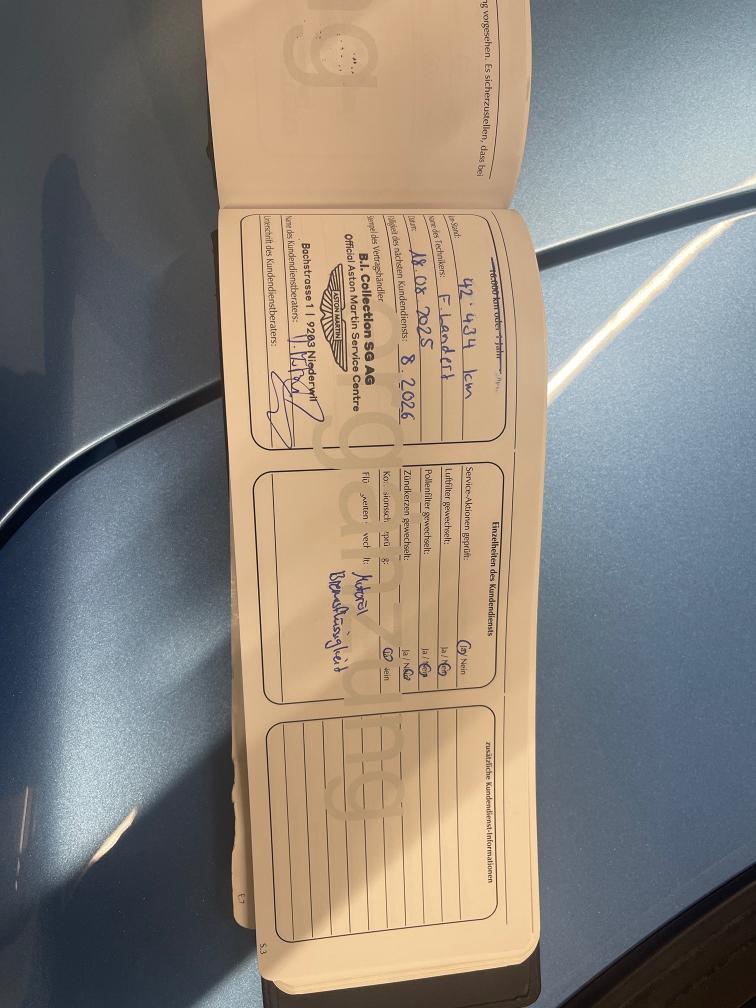 ng vorgesehen. Es sicherzustellen, dass bei
ng
16.000 km oder 1 Jahr
km-Stand: 42'434 km
Name des Technikers: F. Landert
Datum: 18.08.2025
Fälligkeit des nächsten Kundendiensts: 8.2026
Stempel des Vertragshändler
B.I. Collection SG AG
Official Aston Martin Service Centre
ASTON MARTIN
Bachstrasse 1 | 9203 Niederwil
Name des Kundendienstberaters:
Unterschrift des Kundendienstberaters:
Einzelheiten des Kundendiensts
Service-Aktionen geprüft: Ja / Nein
Luftfilter gewechselt: Ja / Nein
Pollenfilter gewechselt: Ja / Nein
Zündkerzen gewechselt: Ja / Nein
Ja / Nein
Motoröl
Bremsflüssigkeit
zusätzliche Kundendienst-Informationen
organzung
E.7
5.3